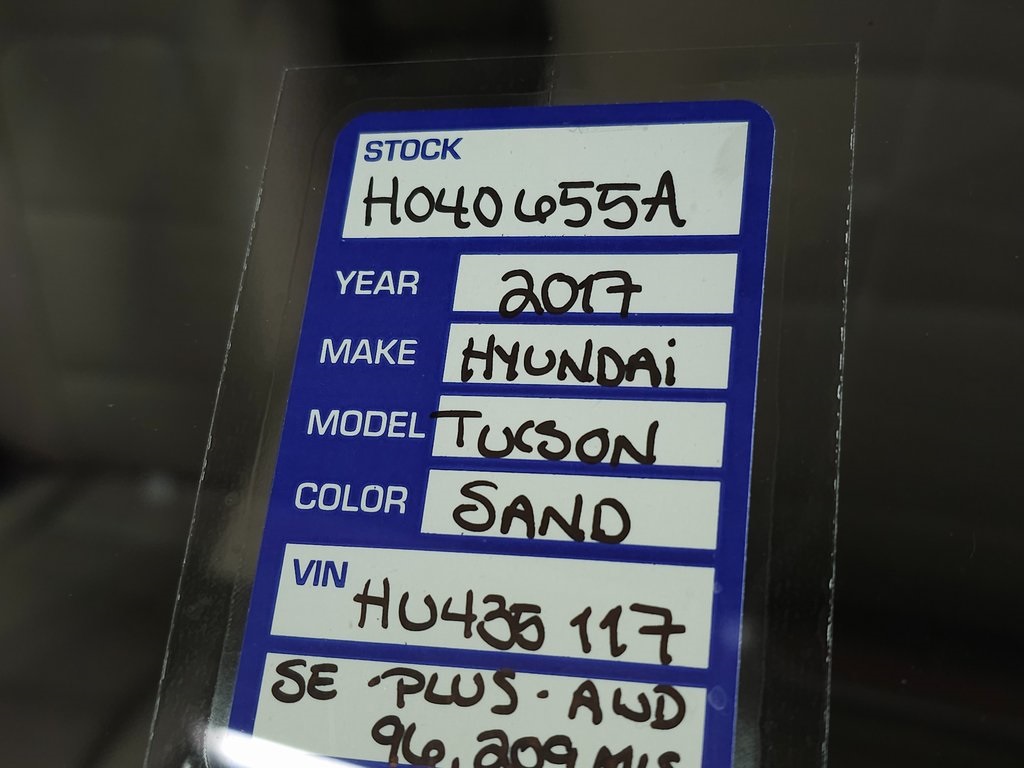 STOCK
H040655A
YEAR 2017
MAKE HYUNDAi
MODEL TUCSON
COLOR SAND
VIN HU435117
SE · PLUS · AWD
96,209 MIS